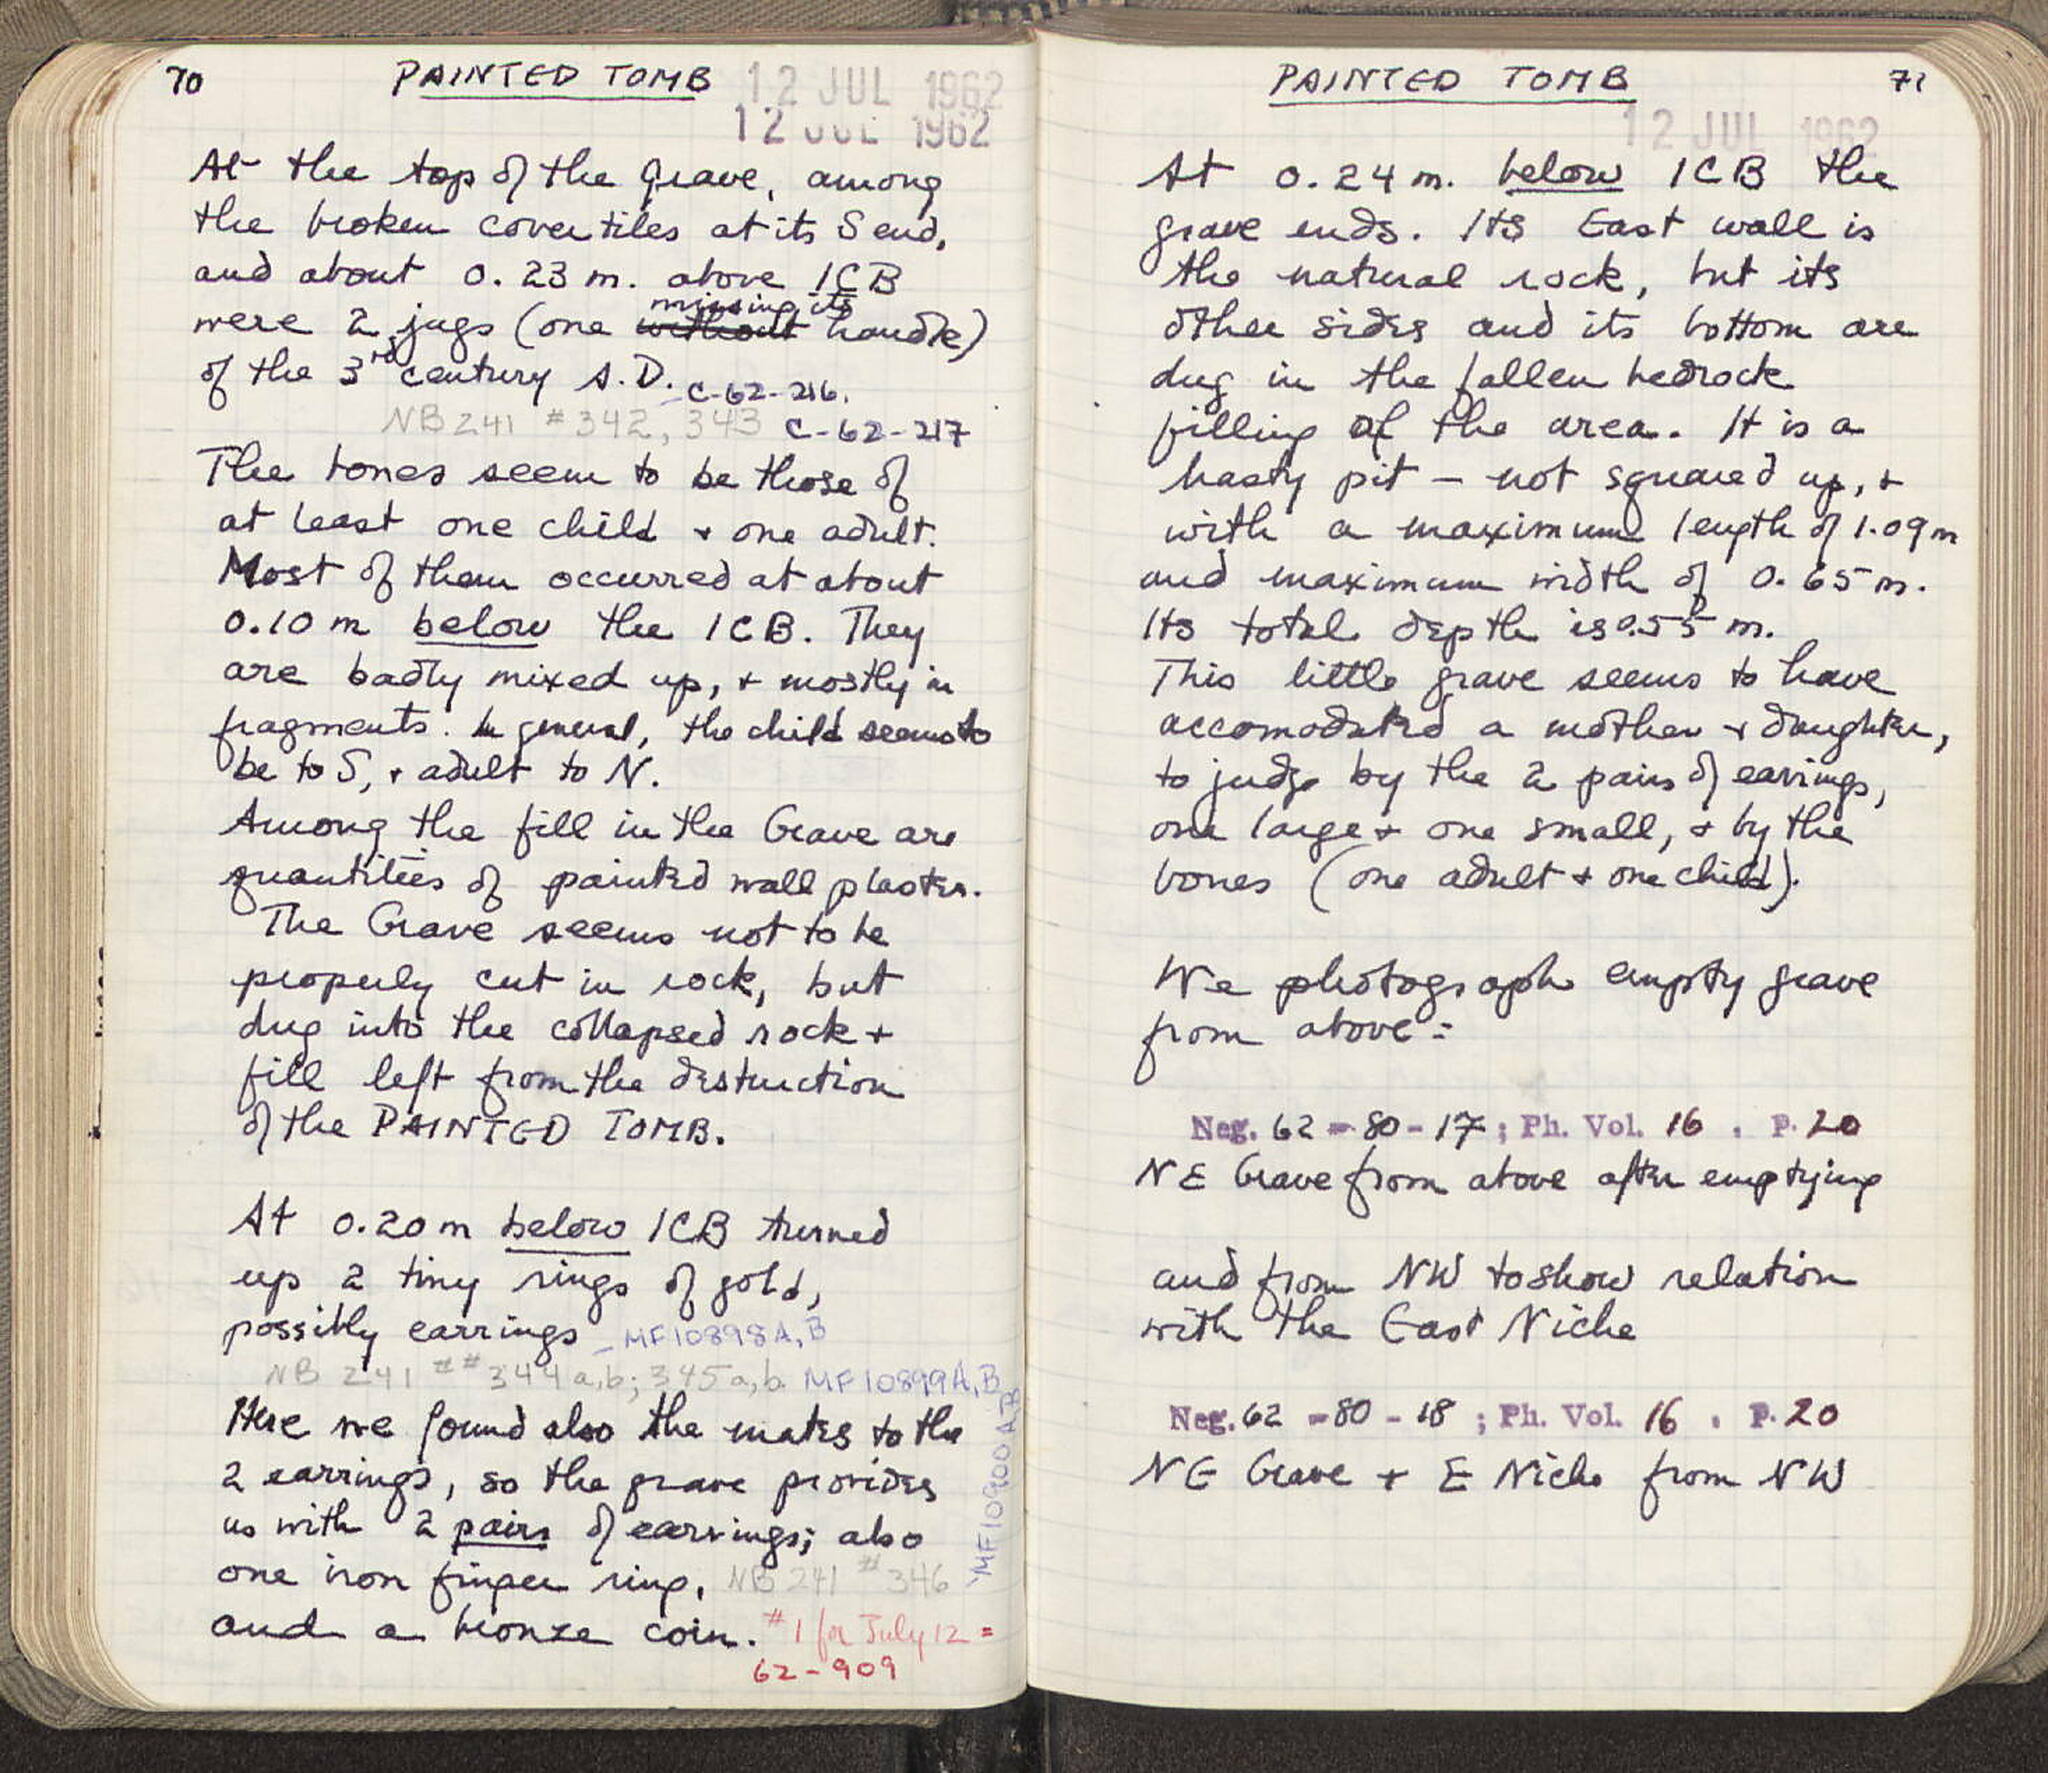 70 PAINTED TOMB 12 JUL 1962
12 JUL 1962
At the top of the Grave, among
the broken covertiles at its S end,
and about 0.23 m. above ICB
missing its
were 2 jugs (one without handle)
of the 3rd century A.D. C-62-216.
NB 241 # 342, 343 C-62-217
The bones seem to be those of
at least one child + one adult.
Most of them occurred at about
0.10 m below the ICB. They
are badly mixed up, + mostly in
fragments. In general, the child seems to
be to S, + adult to N.
Among the fill in the Grave are
quantities of painted wall plaster.
The Grave seems not to be
properly cut in rock, but
dug into the collapsed rock +
fill left from the destruction
of the PAINTED TOMB.
At 0.20 m below ICB turned
up 2 tiny rings of gold,
possibly earrings - MF10898A, B
NB 241 ## 344a,b; 345a,b. MF10899A, B
MF10900 A, B
Here we found also the mates to the
2 earrings, so the grave provides
us with 2 pairs of earrings; also
one iron finger ring, NB 241 # 346
and a bronze coin. #1 for July 12 =
62-909
PAINTED TOMB 71
12 JUL 1962
At 0.24 m. below ICB the
grave ends. Its East wall is
the natural rock, but its
other sides and its bottom are
dug in the fallen bedrock
filling of the area. It is a
hasty pit - not squared up, +
with a maximum length of 1.09 m
and maximum width of 0.65 m.
Its total depth is 0.55 m.
This little grave seems to have
accomodated a mother + daughter,
to judge by the 2 pairs of earings,
one large + one small, + by the
bones (one adult + one child).
We photograph empty grave
from above:
Neg. 62-80-17; Ph. Vol. 16 . P. 20
NE Grave from above after emptying
and from NW to show relation
with the East Niche
Neg. 62-80-18; Ph. Vol. 16 . P. 20
NE Grave + E Niche from NW